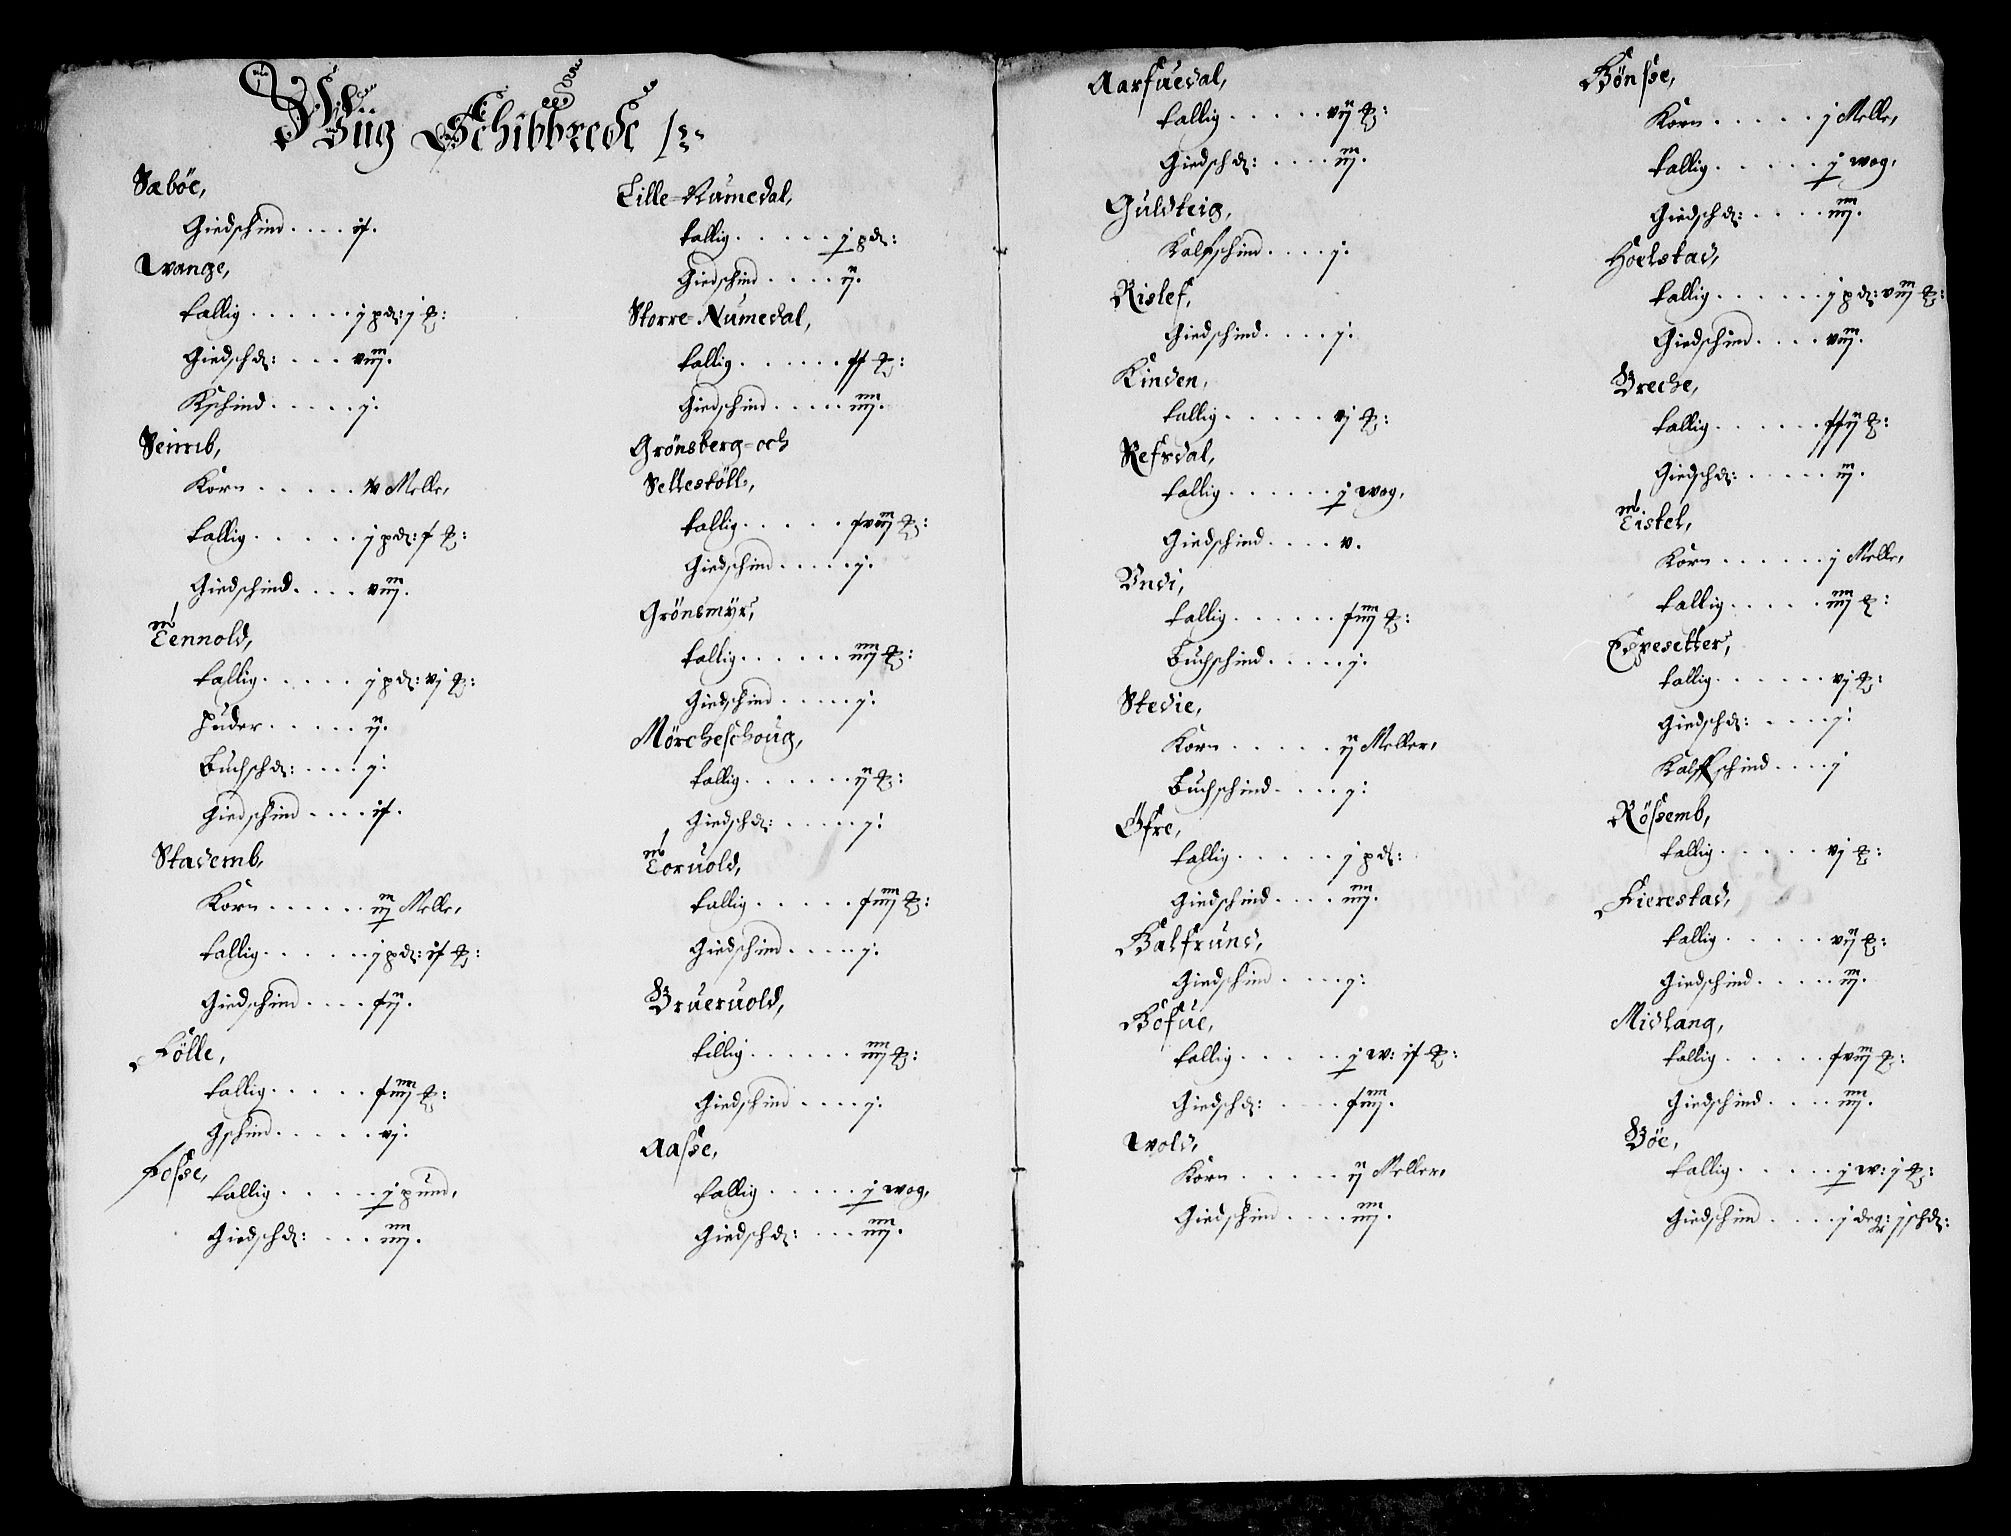 Wiig Schibbrede
Sæbøe,
Giedschind .... if.
Wange,
tallig ...... j pd: j ℔:
Giedschd: ... viij.
Kschind ..... j.
Seimb,
Korn ..... Melle,
tallig ..... j pd: f ℔:
Giedschind .... viij.
Eennold,
tallig ..... j pd: vj ℔:
Huder ..... ij.
Buchschd: .... j.
Giedschind .... if.
Stavemb,
Korn ...... iij Melle,
tallig ...... j pd: if ℔:
Giedschind .... fij.
Tølle,
tallig ..... fiiij ℔:
Gschind ..... vj.
Fosse,
tallig ..... j pund,
Giedschd: ... iiij.
Lille=Numedal,
tallig ..... j pd:
Giedschind .... ij.
Storre=Numedal,
tallig ...... ff ℔:
Giedschind ..... iiij.
Grønsberg=och
Sellestøll,
tallig ..... fviij ℔:
Giedschind ..... j.
Grønsmyr,
tallig ...... iiij ℔:
Giedschind ..... j.
Mørcheschoug,
tallig ...... ij ℔:
Giedschd: ..... j.
Eoruold,
tallig ..... fiiij ℔:
Giedschind ..... j.
Brueruold,
tillig ...... iiij ℔:
Giedschind .... j.
Aasse,
tallig ..... j wog,
Giedschd: ... iiij.
Aarsuedal,
tallig ..... vij ℔:
Giedschd: .... iij.
Guldteig,
Kalfschind .... j.
Rislef,
Giedschind .... j.
Kinden,
tallig ..... vj ℔:
Refsdal,
tallig ...... j wog,
Giedschind .... v.
Undi,
tallig ...... fiiij ℔:
Buchschind ..... j.
Stedie,
Korn ..... ij Meller,
Buchschind .... j.
Øfre,
tallig ..... j pd:
Giedschind .... iiij.
Balfrund,
Giedschind .... j.
Bofue,
tallig ..... j w: if ℔:
Giedschd: .... fiiij.
Wold,
Korn ..... ij Meller,
Giedschind .... iiij.
Bønsse,
Korn ..... j Melle,
tallig ..... j wog,
Giedschd: .... iiij.
Hoelstad,
tallig ...... j pd: viij ℔:
Giedschind .... viij.
Breche,
tallig ...... ffij ℔:
Giedschd: ..... iij.
Eistel,
Korn ...... j Melle,
tallig ..... iiij ℔:
Espesetter,
tallig ...... vj ℔:
Giedschd: .... j.
Kalfschind .... j
Røssemb,
tallig ..... vj ℔:
Fierestad,
tallig ..... vij ℔:
Giedschind ..... iij.
Midlang,
tallig ..... fviij ℔:
Giedschind .... iiij.
Bøe,
tallig ..... j w: j ℔:
Giedschind .... j degr: j schd: